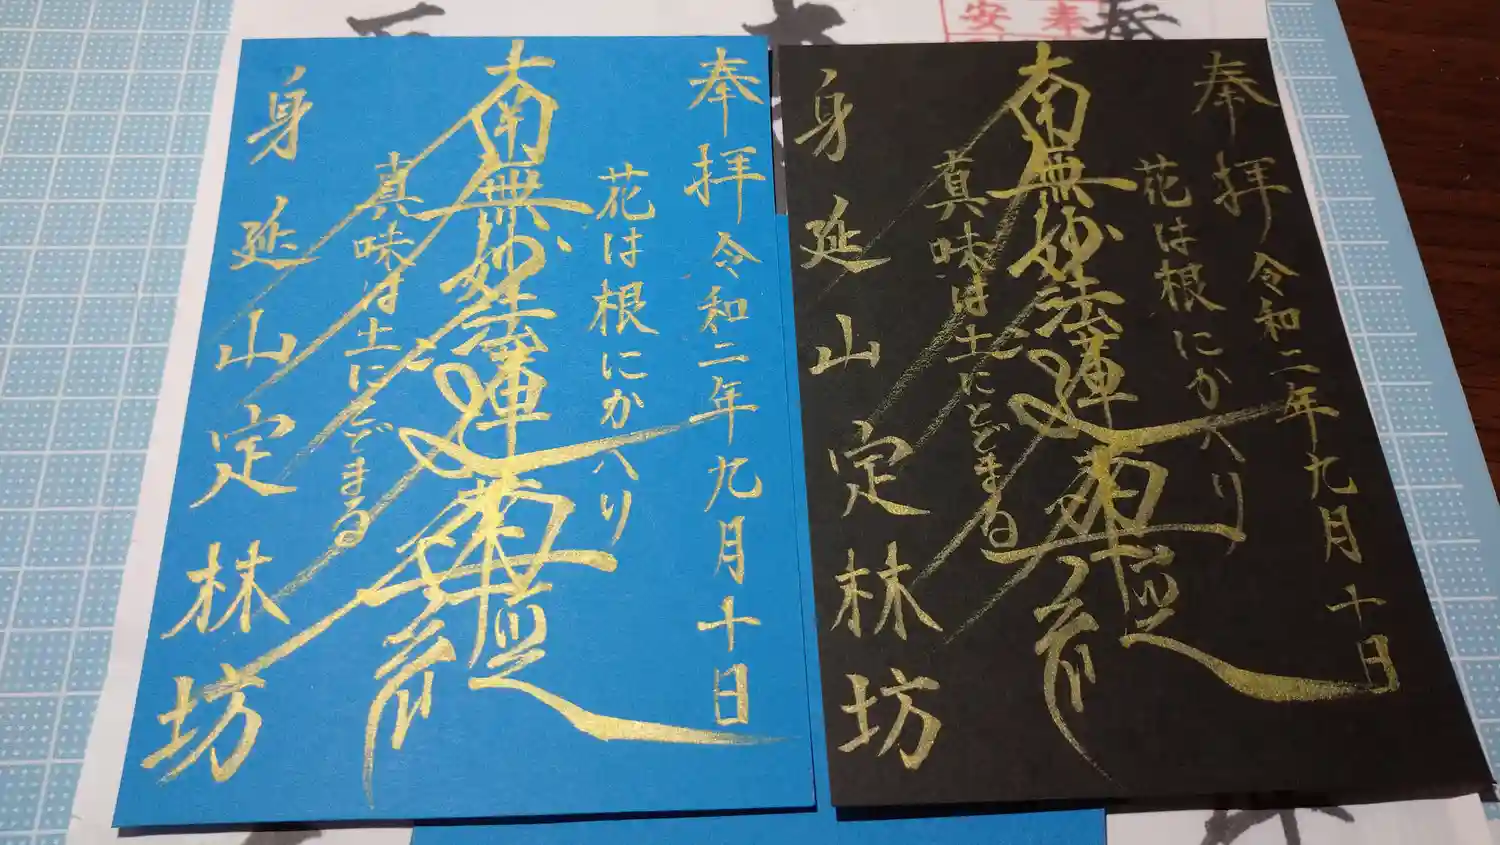 奉拝 令和二年九月十日
花は根にかへり
南無妙法蓮華経
真味は土にとどまる
身延山定林坊
奉拝 令和二年九月十日
花は根にかへり
南無妙法蓮華経
真味は土にとどまる
身延山定林坊
奉
安